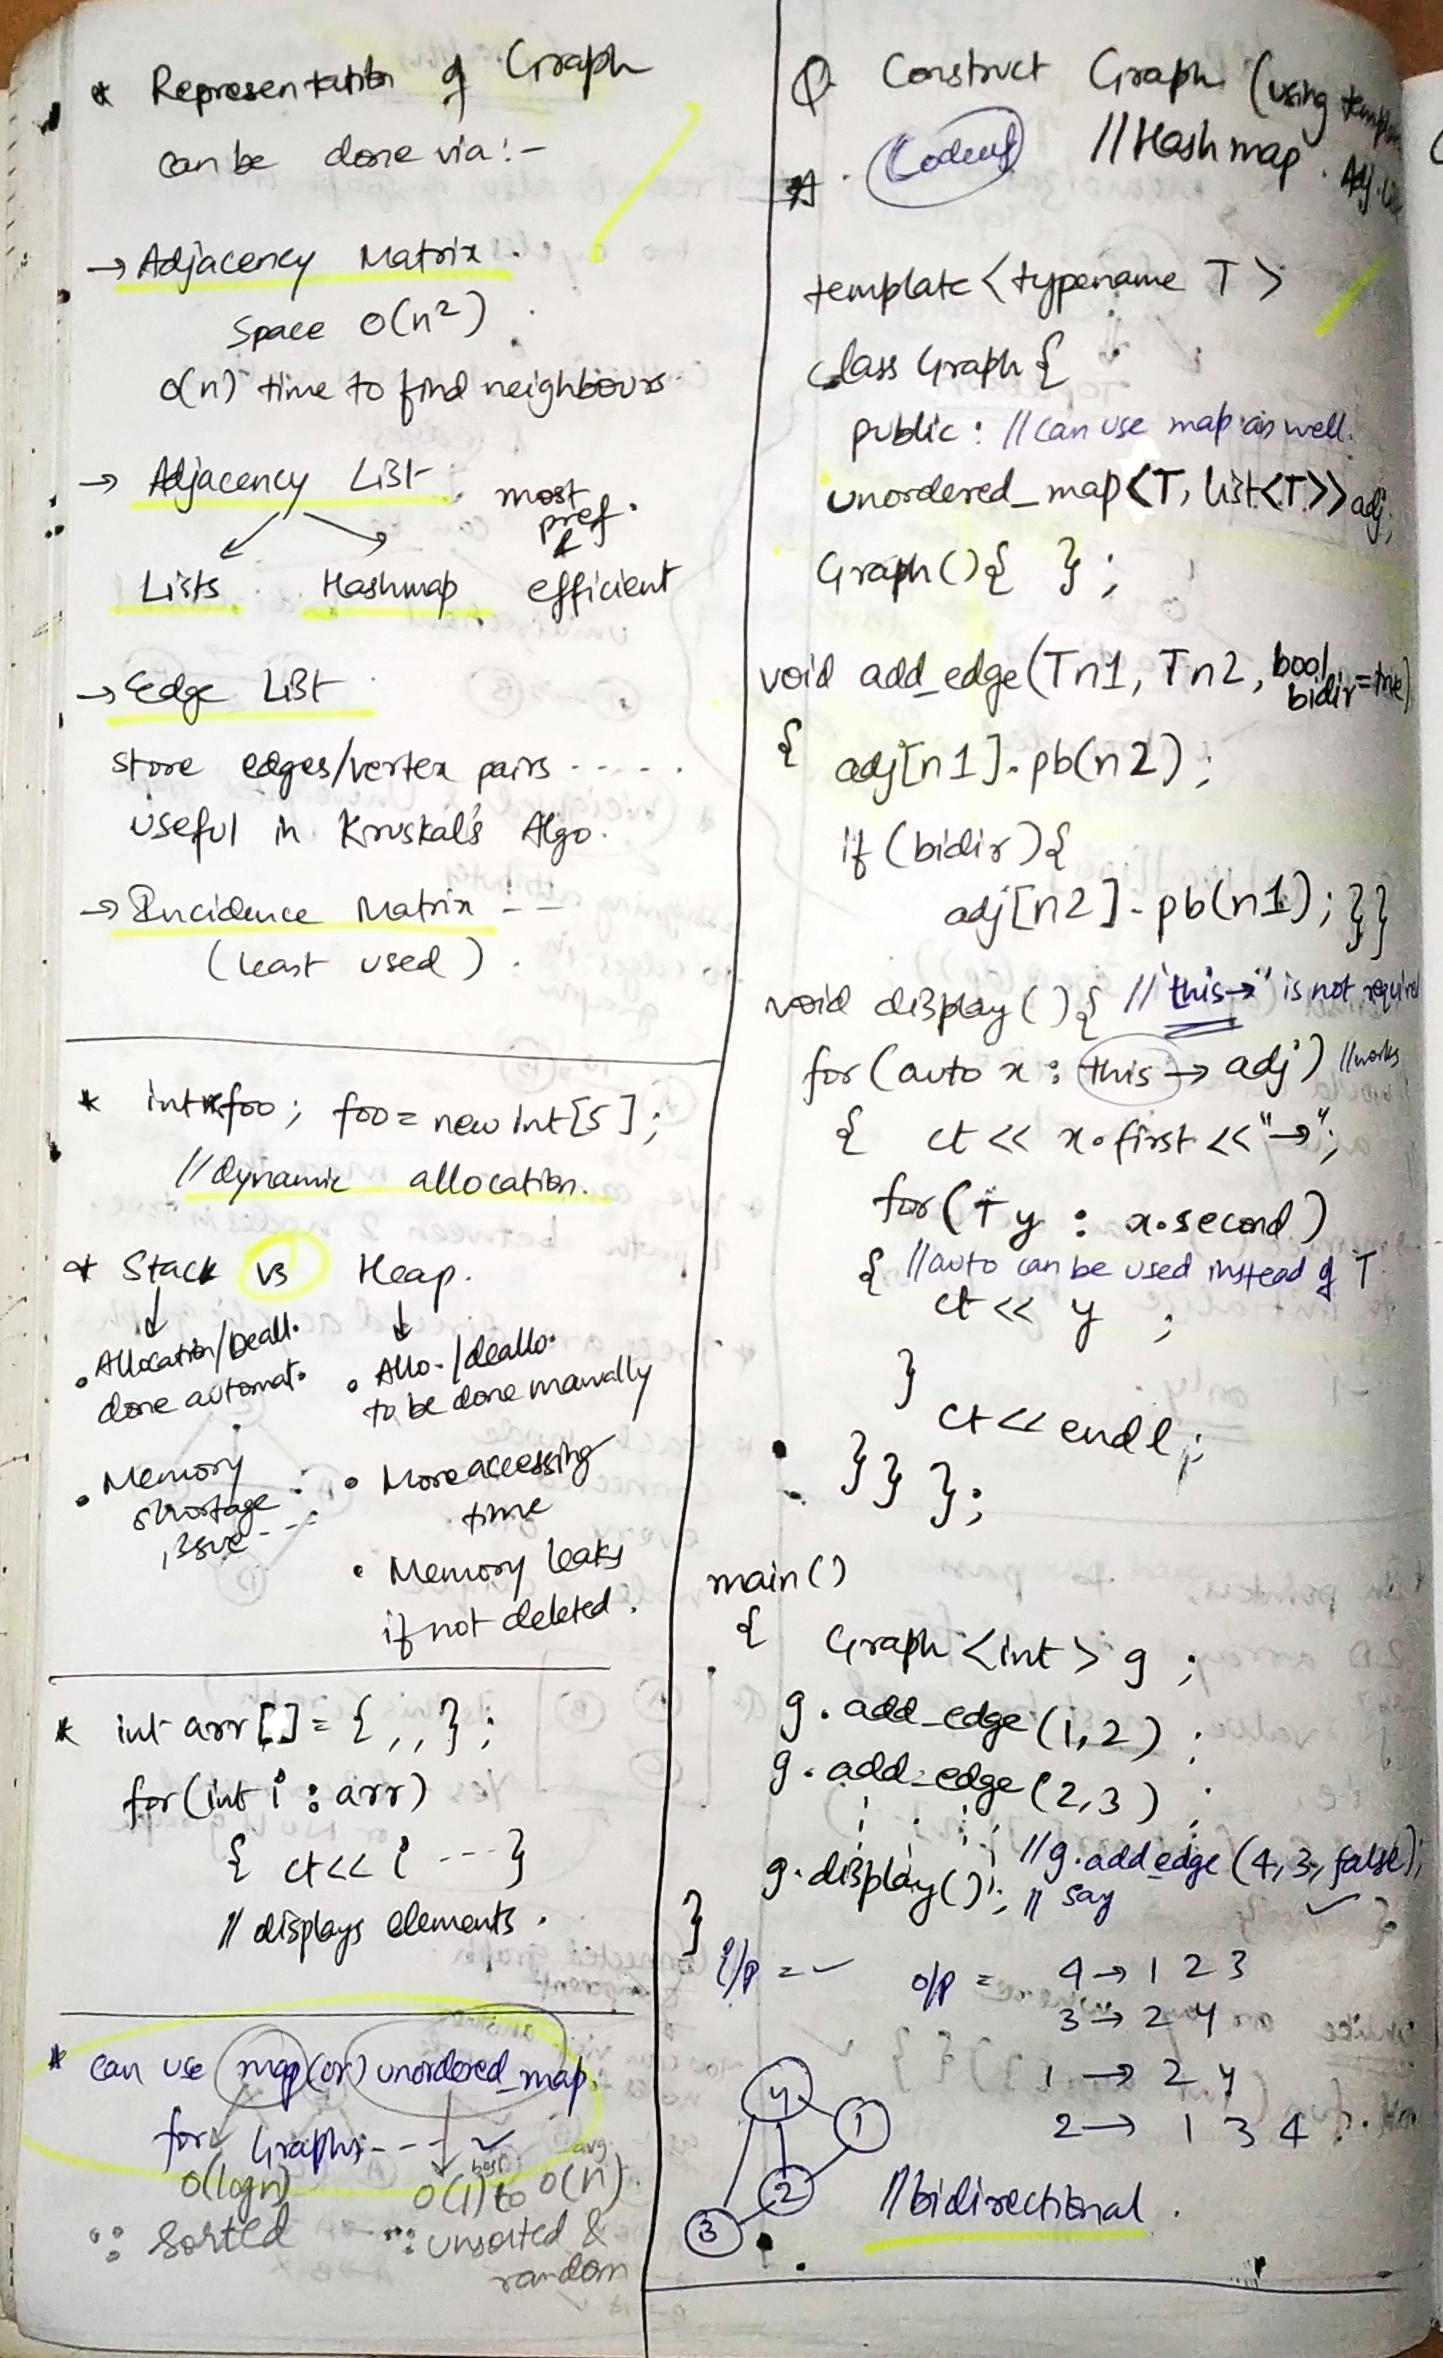 * Representation of Graph
can be done via :-
→ Adjacency Matrix.
Space O(n²)
O(n) time to find neighbours.
→ Adjacency List.
most
pref.
Lists Hashmap efficient
→ Edge List
store edges/vertex pairs .....
useful in Kruskal's Algo.
→ Incidence Matrix :--
(least used).
* int *foo; foo = new int[5];
// dynamic allocation.
* Stack vs Heap.
• Allocation/Deall.
done automat.
• Memory
shortage
issue ---
• Allo./deallo.
to be done manually
• More accessing
time
• Memory leaks
if not deleted.
* int arr[] = { , , };
for(int i : arr)
{ ct<< i --- }
// displays elements.
* can use map (or) unordered_map.
for Graphs ---
O(logn) O(1) best to O(n) avg.
∵ Sorted ∵ unsorted &
random
Q Construct Graph (using
A. Codeup // Hashmap. Adj.
template <typename T>
class Graph {
public: // can use map as well.
unordered_map<T, list<T>> adj;
Graph(){ };
void add_edge(T n1, T n2, bool
bidir=true)
{ adj[n1].pb(n2);
if (bidir){
adj[n2].pb(n1); }}
void display(){ // "this→" is not required
for(auto x : this→adj) // works
{ ct << x.first << "→";
for(T y : x.second)
{ // auto can be used instead of T
ct << y ;
}
ct<<endl;
}} };
main()
{ Graph <int> g ;
g.add_edge(1,2) ;
g.add_edge(2,3) ;
g.display(); // g.add_edge(4,3,false);
// say
}
i/p = ✓ o/p = 4→ 1 2 3
3→ 2 4
1 → 2 4
2 → 1 3 4
4
1
2
3
// bidirectional.